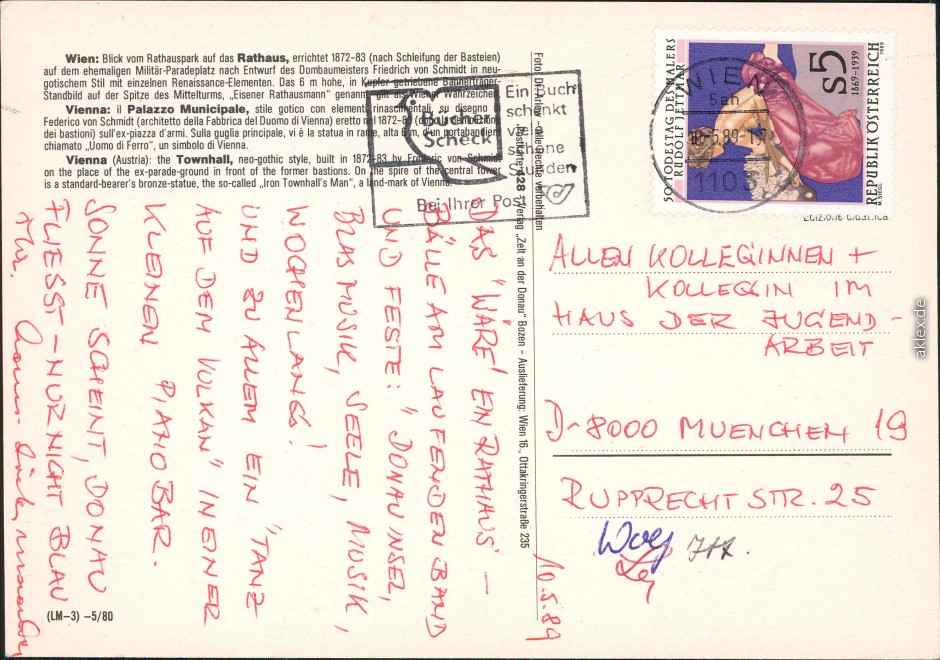 Wien: Blick vom Rathauspark auf das Rathaus, errichtet 1872-83 (nach Schleifung der Basteien)
auf dem ehemaligen Militär-Paradeplatz nach Entwurf des Dombaumeisters Friedrich von Schmidt in neu-
gotischem Stil mit einzelnen Renaissance-Elementen. Das 6 m hohe, in Kupfer getriebene Bannerträger-
Standbild auf der Spitze des Mittelturms, „Eiserner Rathausmann" genannt, gilt als Wiener Wahrzeichen.
Vienna: il Palazzo Municipale, stile gotico con elementi rinascimentali, su disegno di
Federico von Schmidt (architetto della Fabbrica del Duomo di Vienna) eretto nel 1872-83 (dopo la demolizione
dei bastioni) sull'ex-piazza d'armi. Sulla guglia principale, vi è la statua in rame, alta 6 m, d'un portabandiera
chiamato „Uomo di Ferro", un simbolo di Vienna.
Vienna (Austria): the Townhall, neo-gothic style, built in 1872-83 by Frederic von Schmidt
on the place of the ex-parade-ground in front of the former bastions. On the spire of the central tower
is a standard-bearer's bronze-statue, the so-called „Iron Townhall's Man", a land-mark of Vienna.
Bücher
Scheck
Ein Buch
schenkt
viele
schöne
Stunden
Bei Ihrer Post
Alle Rechte vorbehalten
Verlag „Zelt an der Donau" Bozen - Auslieferung: Wien 16., Ottakringerstraße 235
50. TODESTAG DES MALERS
RUDOLF JETTMAR
S5
1869-1939
REPUBLIK ÖSTERREICH
WIEN
1103
DAS "WÄRE" EIN RATHAUS -
BÄLLE AM LAUFENDEN BAND
UND FESTE: "DONAUINSEL,
BLASMUSIK, SEELE, MUSIK,
WOCHENLANG!
UND ZU ALLEM EIN "TANZ
AUF DEM VULKAN" IN EINER
KLEINEN PIANOBAR.
SONNE SCHEINT, DONAU
FLIESST - NUR NICHT BLAU
10.5.89
ALLEN KOLLEGINNEN +
KOLLEGEN IM
HAUS DER JUGEND-
ARBEIT
D-8000 MUENCHEN 19
RUPPRECHTSTR. 25
(LM-3) -5/80
aklex.de